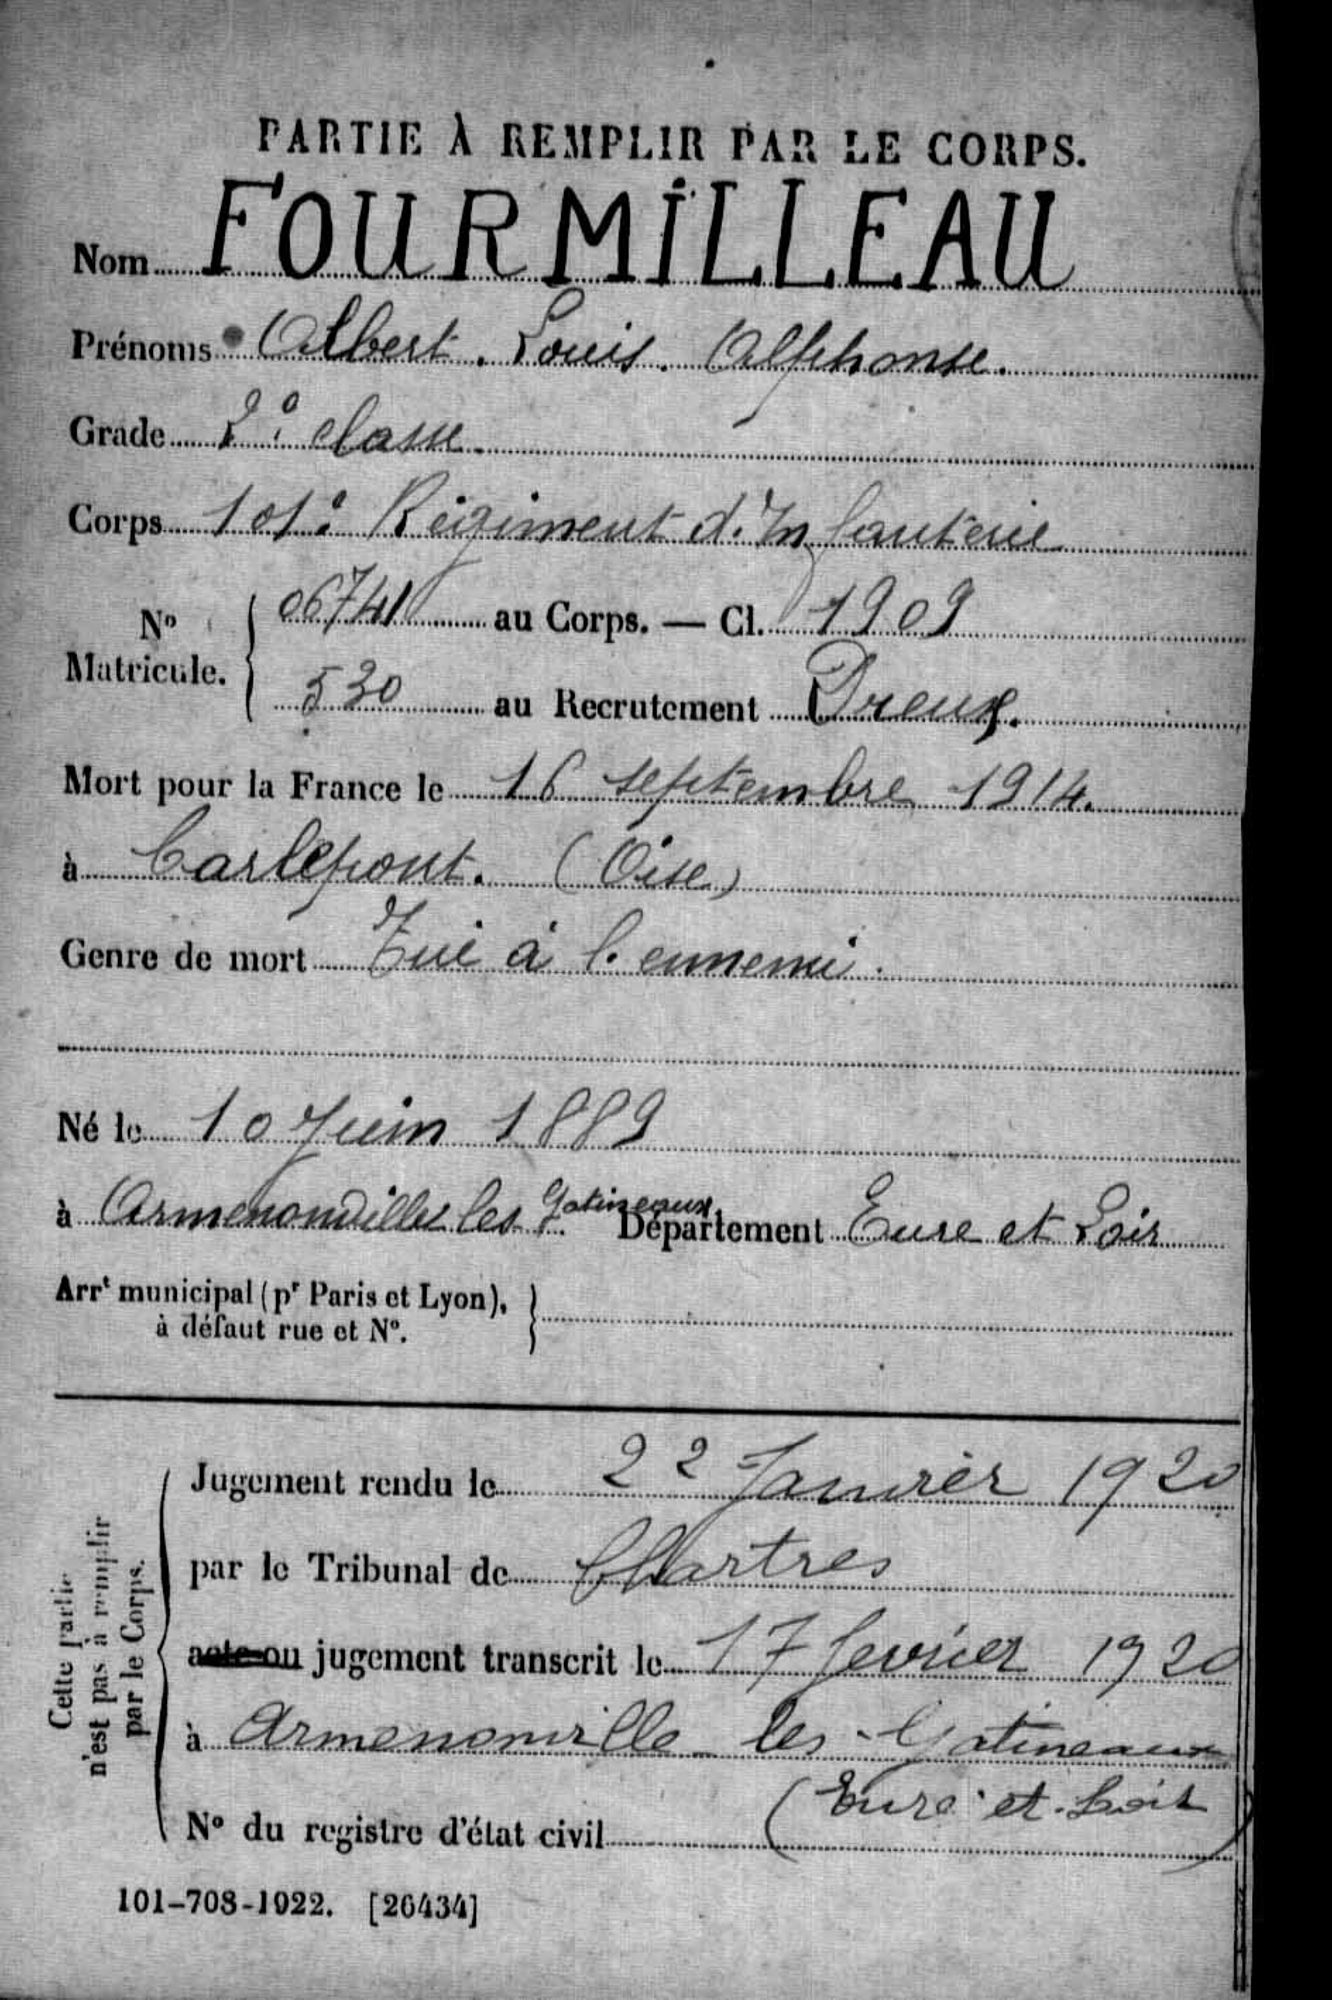 PARTIE À REMPLIR PAR LE CORPS.
Nom FOURMILLEAU
Prénoms Albert. Louis. Alphonse.
Grade 2e classe
Corps 101e Régiment d'Infanterie
No Matricule. { 06741 au Corps. — Cl. 1909
530 au Recrutement Dreux.
Mort pour la France le 16 septembre 1914.
à Carlepont. (Oise)
Genre de mort Tué à l'ennemi.
Né le 10 Juin 1889
à Armenonville les Gatineaux Département Eure et Loir
Arrt municipal (pr Paris et Lyon), }
à défaut rue et No.
Cette partie
n'est pas à remplir
par le Corps.
Jugement rendu le 22 Janvier 1920
par le Tribunal de Chartres
acte ou jugement transcrit le 17 fevrier 1920
à Armenonville les-Gatineaux
(Eure et Loir)
No du registre d'état civil
101-708-1922. [26434]